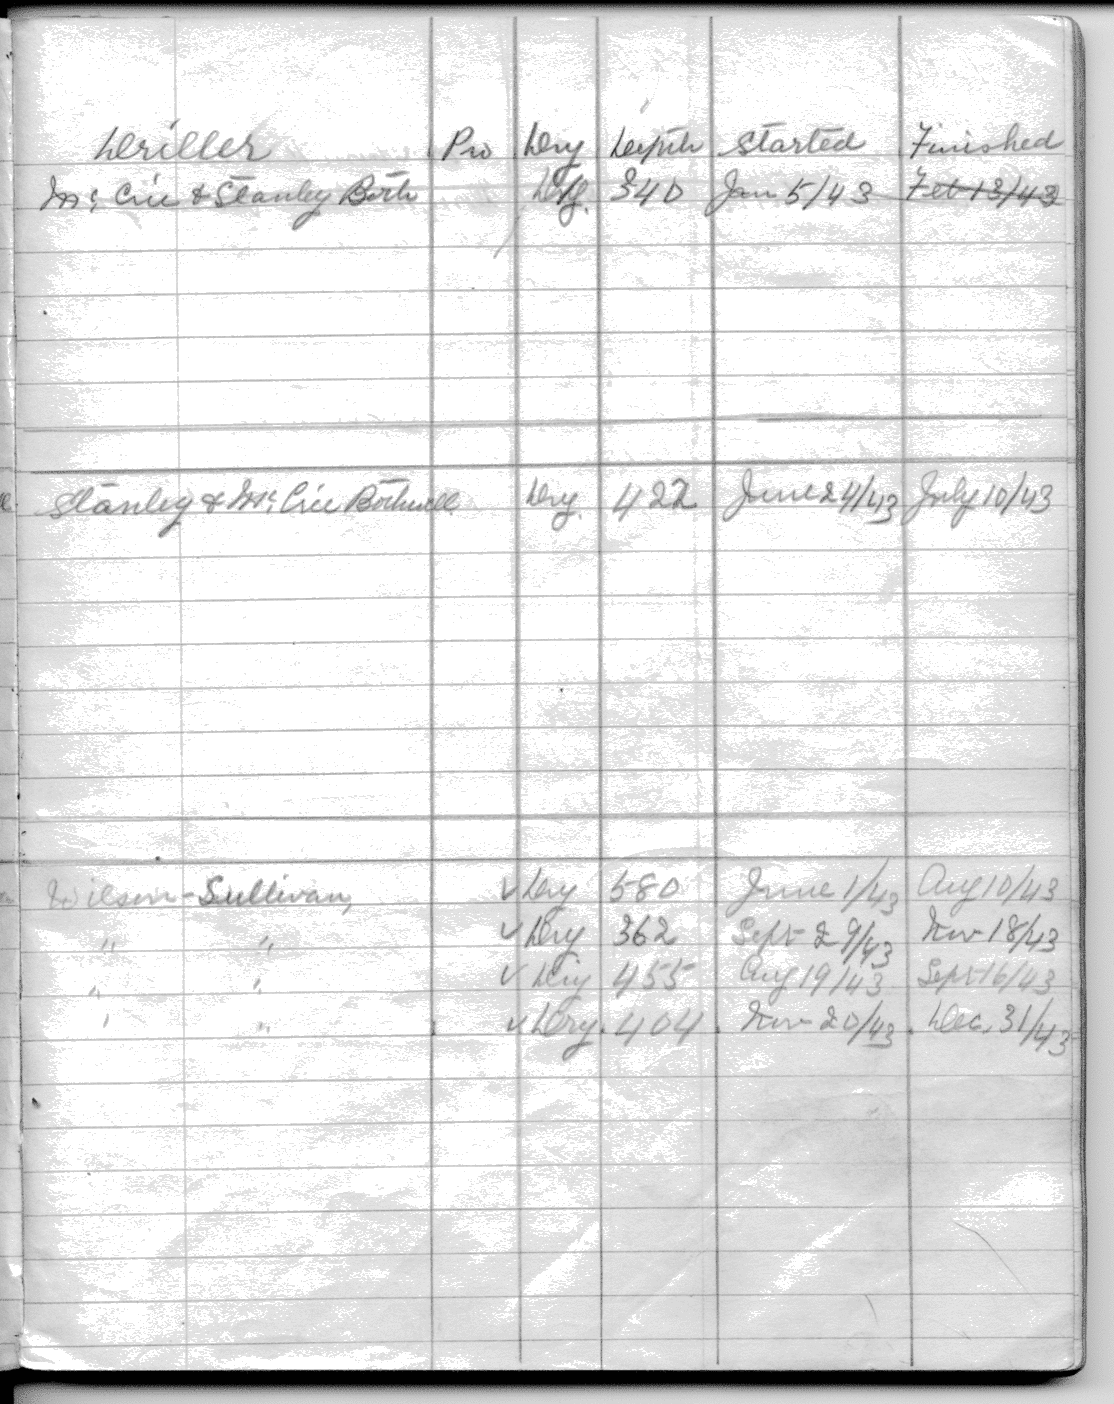 Driller Pro Dry Depth Started Finished
Mc Crie & Stanley Both Dry. 340 Jan 5/43 Feb 13/43
Stanley & Mc Crie Bothwell Dry. 422 June 24/43 July 10/43
Wilson-Sullivan, ✓ Dry 580 June 1/43 Aug 10/43
" " ✓ Dry 362 Sept 29/43 Nov 18/43
" " ✓ Dry 455 Aug 19/43 Sept 16/43
" " ✓ Dry. 404. Nov 20/43. Dec. 31/43